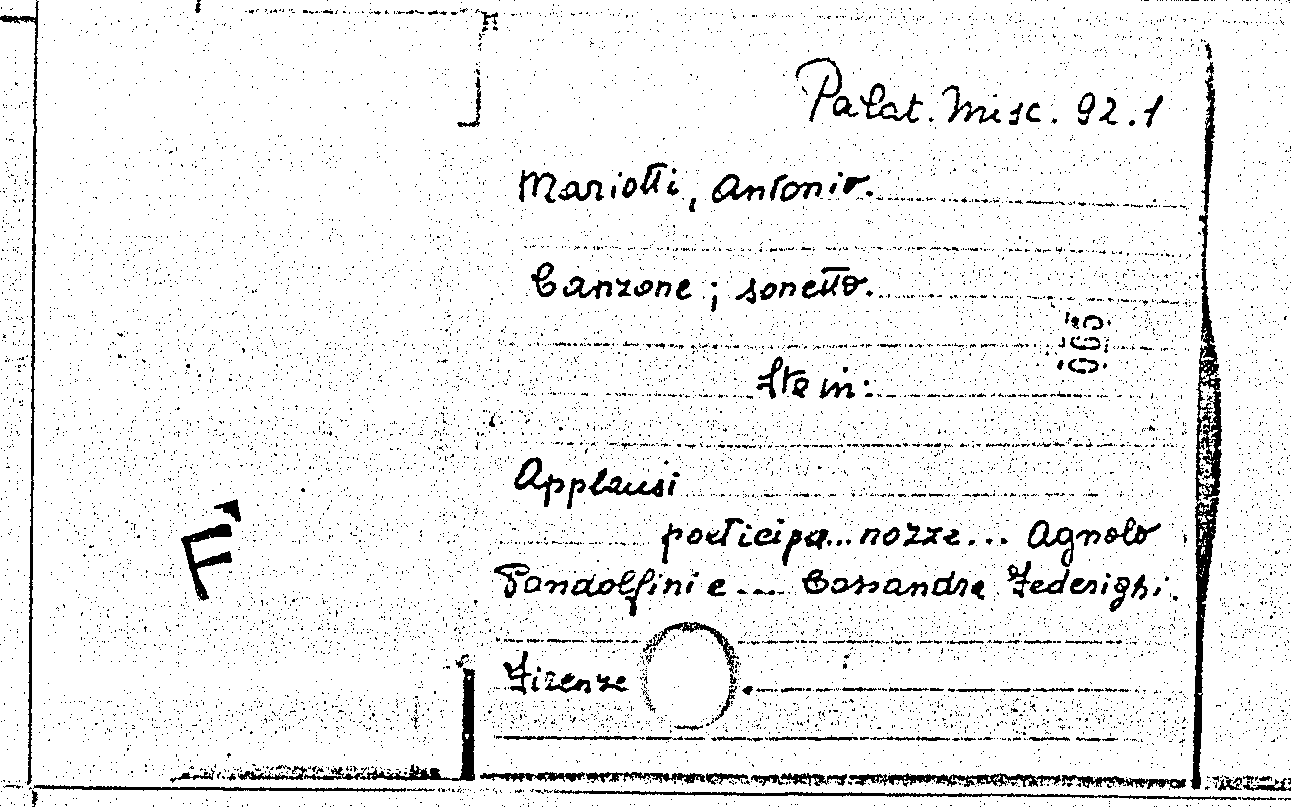 Palat. Misc. 92.1
Mariotti, Antonio.
Canzone; sonetto.
065
Sta in:
Applausi
poetici pa... nozze... Agnolo
Pandolfini e .... Cassandra Federighi.
Firenze
F